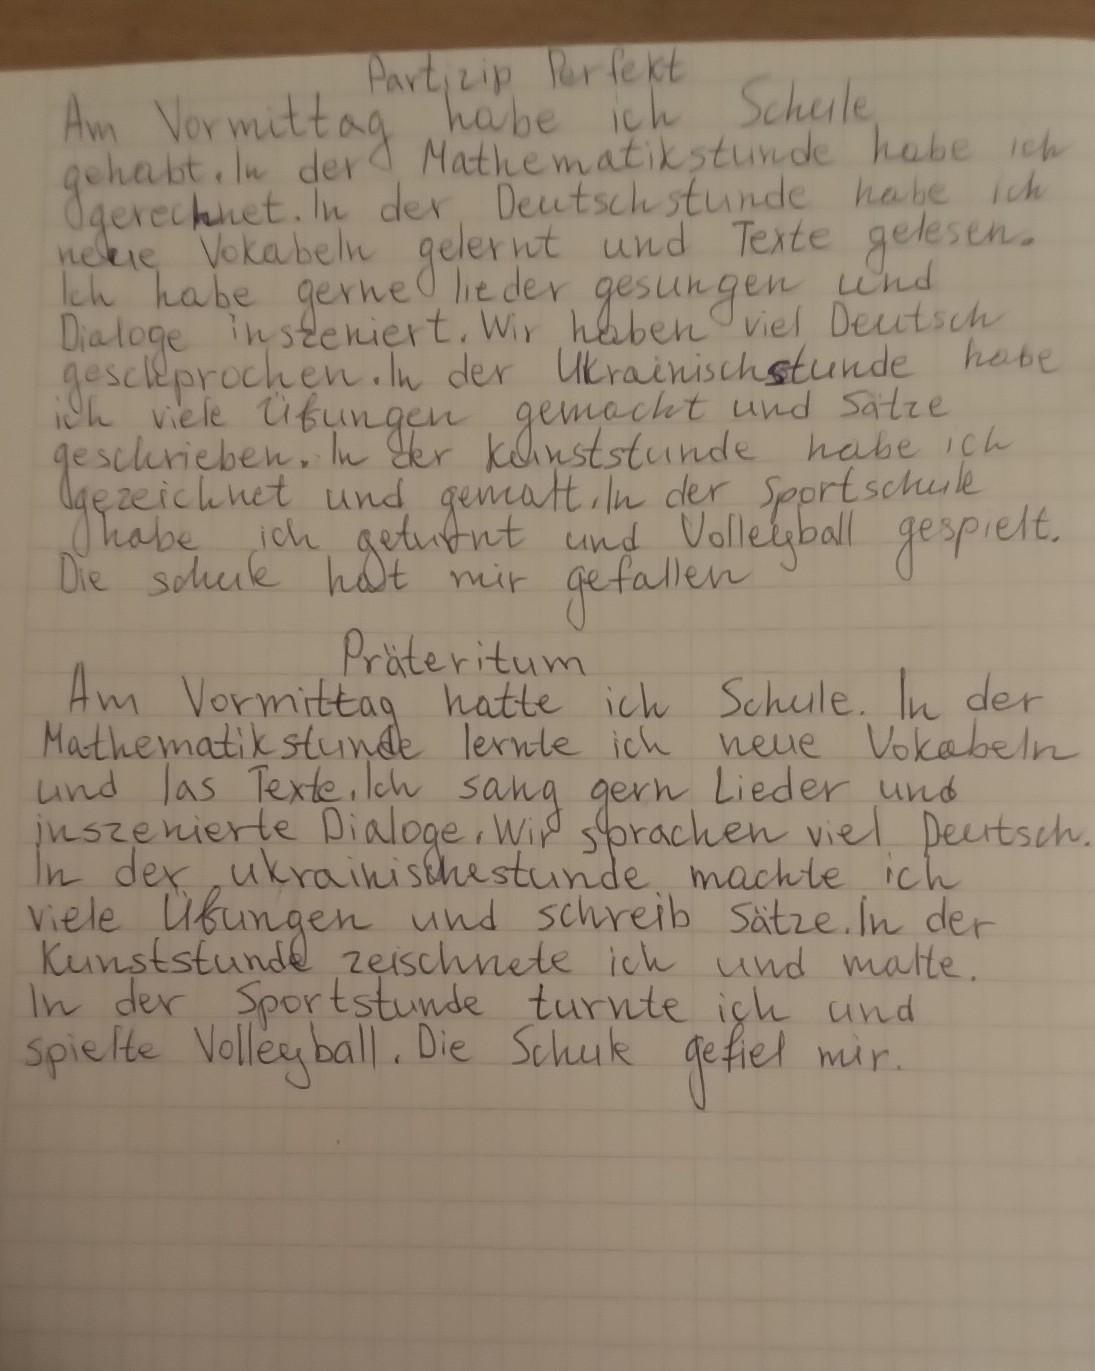 Partizip Perfekt
Am Vormittag habe ich Schule
gehabt. In der Mathematikstunde habe ich
gerechnet. In der Deutschstunde habe ich
neue Vokabeln gelernt und Texte gelesen.
Ich habe gerne lieder gesungen und
Dialoge inszeniert. Wir haben viel Deutsch
gesckprochen. In der Ukrainischstunde habe
ich viele Übungen gemacht und Sätze
geschrieben. In der Kunststunde habe ich
gezeichnet und gemalt. In der Sportschule
habe ich geturnt und Volleyball gespielt.
Die schule hat mir gefallen
Präteritum
Am Vormittag hatte ich Schule. In der
Mathematikstunde lernte ich neue Vokabeln
und las Texte. Ich sang gern Lieder und
inszenierte Dialoge. Wir sprachen viel Deutsch.
In der ukrainischestunde machte ich
viele Übungen und schreib Sätze. In der
Kunststunde zeischnete ich und malte.
In der Sportstunde turnte ich und
spielte Volleyball. Die Schule gefiel mir.